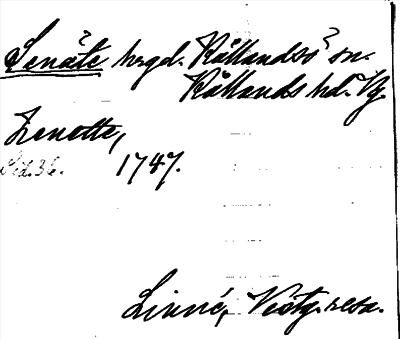 Senäte hrgd. Kållandsö sn.
Kållands hd. Vg.
Zenette,
Sid. 36. 1747.
Linné, Västg. resa.